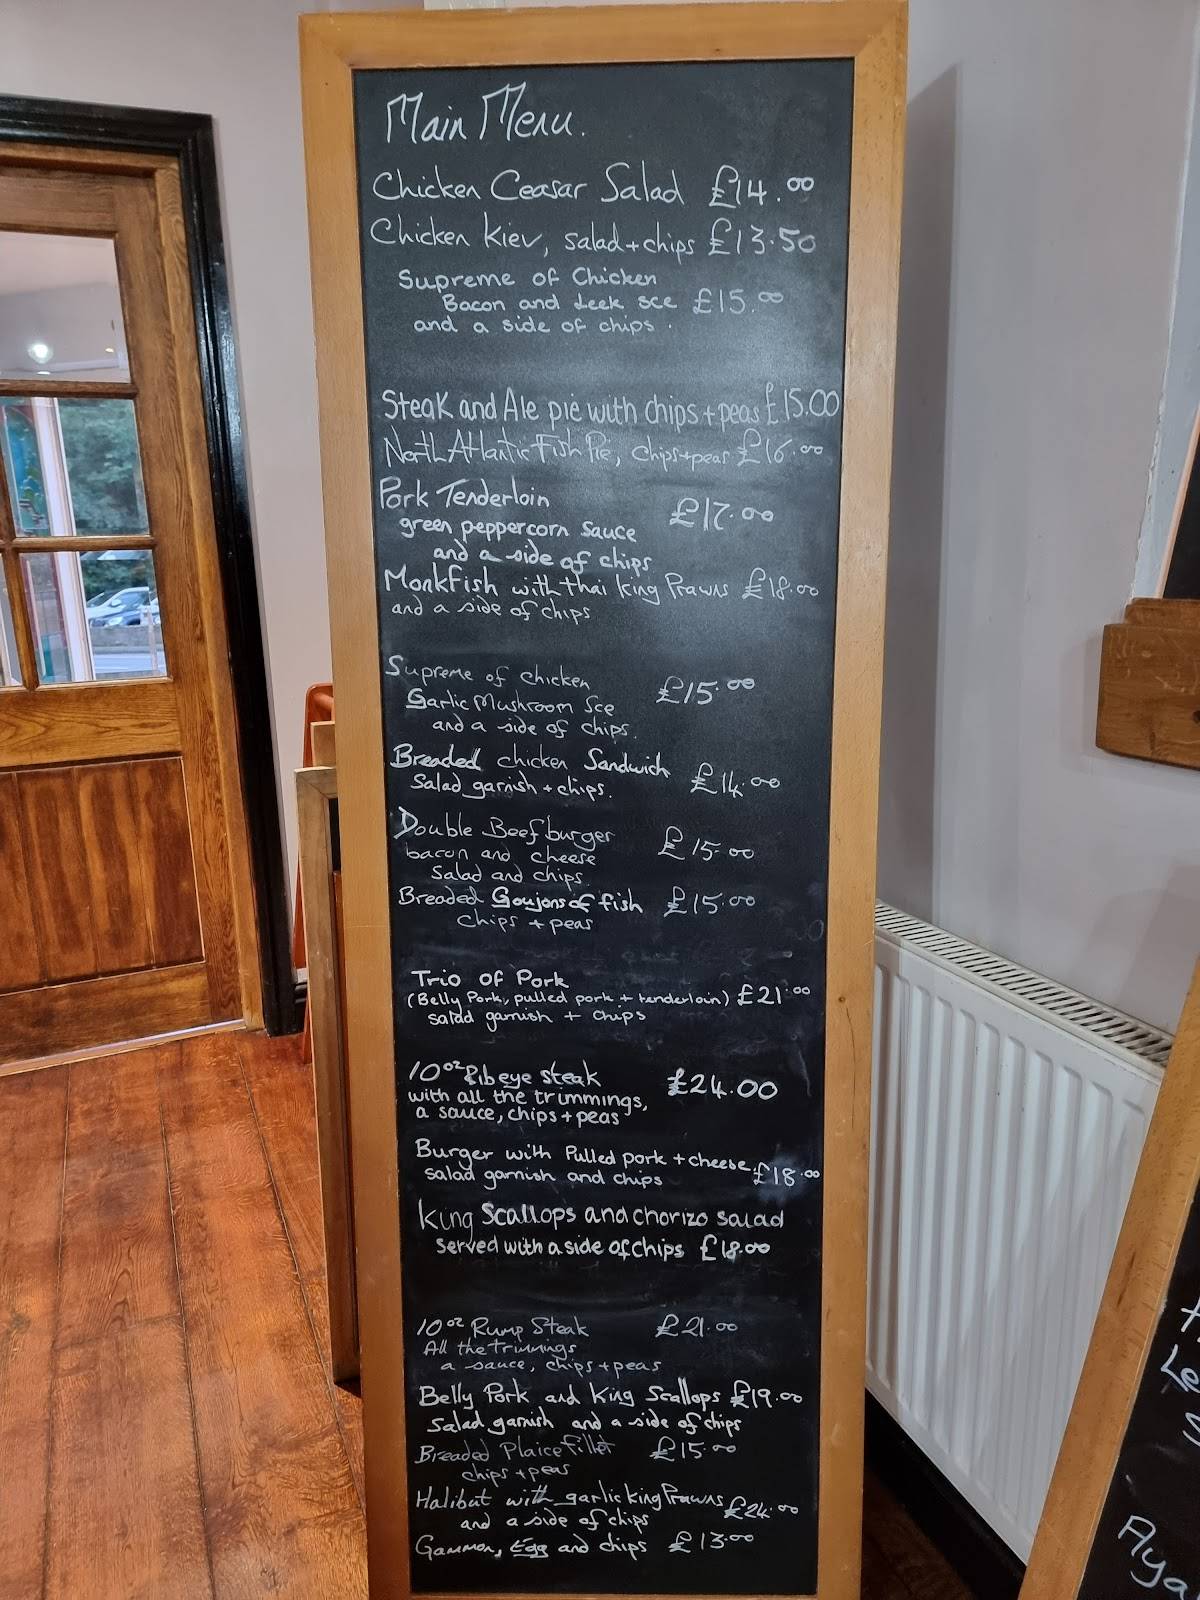 Main Menu.
Chicken Ceasar Salad £14.00
Chicken Kiev, salad + chips £13.50
Supreme of Chicken
Bacon and Leek sce £15.00
and a side of chips.
Steak and Ale pie with chips + peas £15.00
North Atlantic Fish Pie, chips + peas £16.00
Pork Tenderloin £17.00
green peppercorn sauce
and a side of chips
Monkfish with thai King Prawns £18.00
and a side of chips
Supreme of chicken £15.00
Garlic Mushroom Sce
and a side of chips.
Breaded chicken Sandwich £14.00
Salad garnish + chips.
Double Beefburger £15.00
bacon and cheese
salad and chips.
Breaded Goujons of fish £15.00
chips + peas
Trio of Pork
(Belly Pork, pulled pork + tenderloin) £21.00
salad garnish + chips
10oz Ribeye steak £24.00
with all the trimmings,
a sauce, chips + peas
Burger with Pulled pork + cheese £18.00
salad garnish and chips
King Scallops and chorizo salad
served with a side of chips £18.00
10oz Rump Steak £21.00
All the trimmings
a sauce, chips + peas
Belly Pork and King Scallops £19.00
Salad garnish and a side of chips
Breaded Plaice fillet £15.00
chips + peas
Halibut with garlic King Prawns £24.00
and a side of chips
Gammon, Egg and chips £13.00